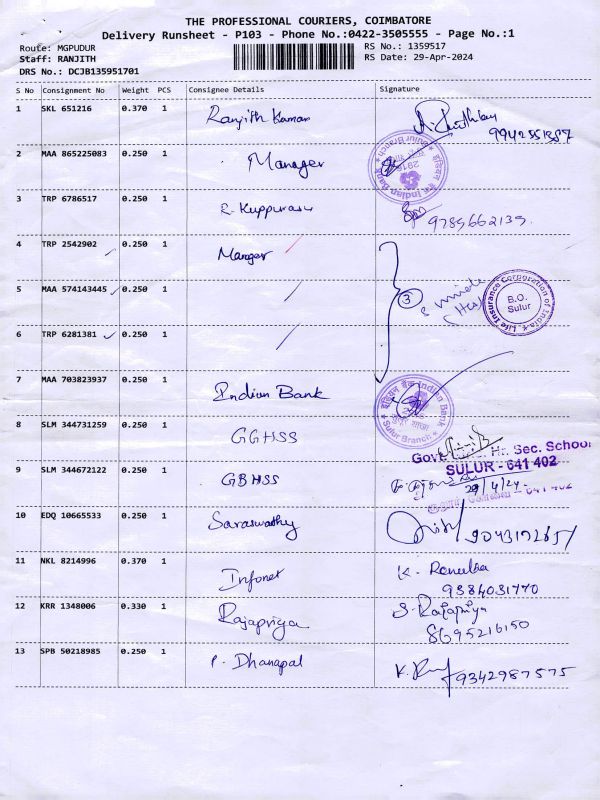 THE PROFESSIONAL COURIERS, COIMBATORE
Delivery Runsheet - P103 - Phone No.:0422-3505555 - Page No.:1
Route: MGPUDUR
RS No.: 1359517
Staff: RANJITH
RS Date: 29-Apr-2024
DRS No.: DCJB135951701
S No Consignment No Weight PCS Consignee Details Signature
1 SKL 651216 0.370 1 Ranjith Kumar
9942551387
2 MAA 865225083 0.250 1 Manager
Indian Bank Sulur Branch
3 TRP 6786517 0.250 1 R. Kuppurasu 9789662139.
4 TRP 2542902 0.250 1 Manger
5 MAA 574143445 0.250 1 3
Life Insurance Corporation of India
B.O.
Sulur
6 TRP 6281381 0.250 1
7 MAA 703823937 0.250 1 Indian Bank
इंडियन बैंक Indian Bank
Sulur Branch
8 SLM 344731259 0.250 1 GGHSS
Hr. Sec. School
SULUR - 641 402
9 SLM 344672122 0.250 1 GBHSS 29/4/24
641 402
10 EDQ 10665533 0.250 1 Saraswathy
11 NKL 8214996 0.370 1 Infonet K. Renuka
9384031770
12 KRR 1348006 0.330 1 Rajapriya S. Rajapriya
8695216150
13 SPB 50218985 0.250 1 P. Dhanapal 9342987575